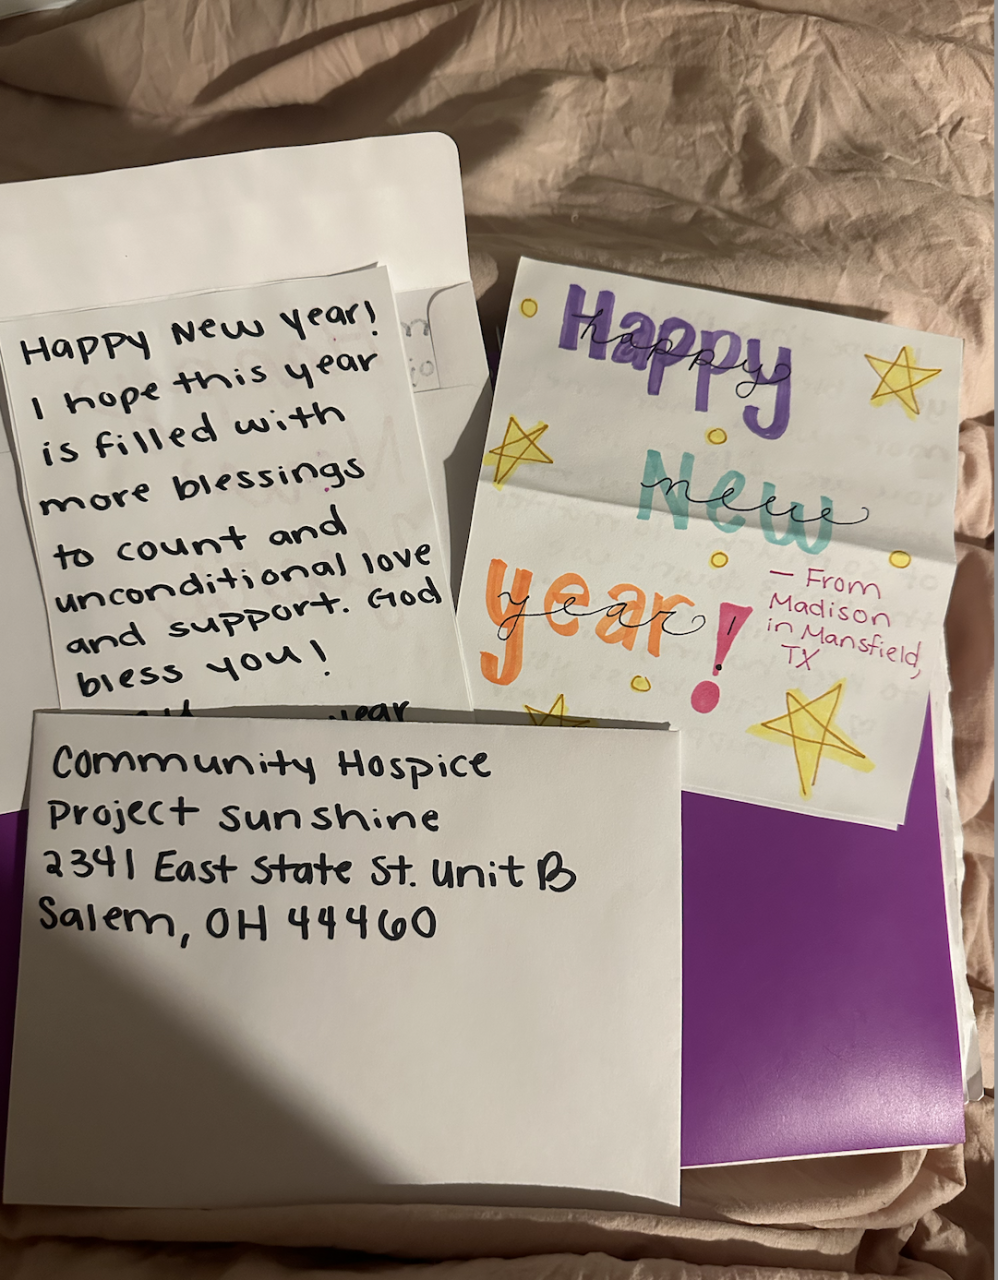 Happy New year!
I hope this year
is filled with
more blessings
to count and
unconditional love
and support. God
bless you!
year
Happy
happy
New
new
year!
year!
- From
Madison
in Mansfield,
TX
Community Hospice
Project Sunshine
2341 East State St. Unit B
Salem, OH 44460